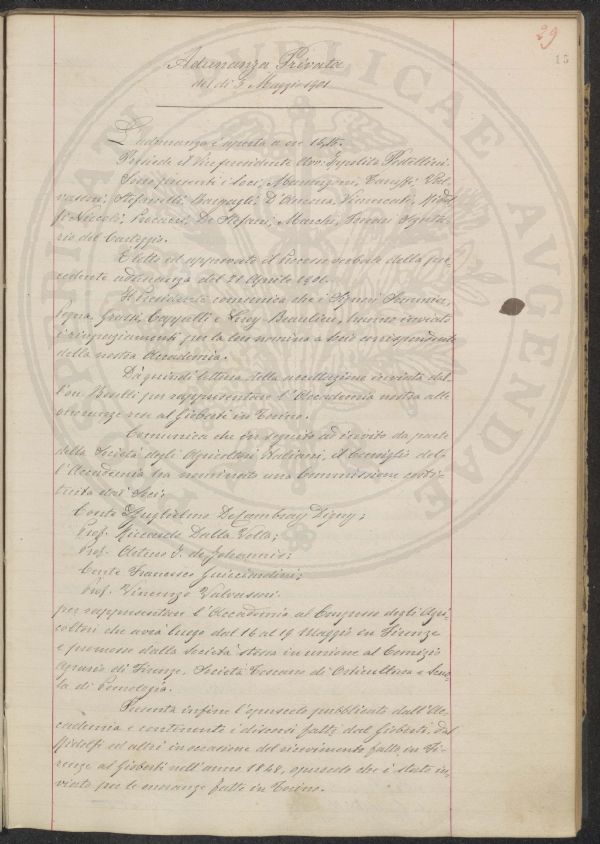 29
15
Adunanza Privata
del dì 5 Maggio 1901
L'adunanza è aperta a ore
Presiede il Vicepresidente Avv: Ippolito Pestellini.
Sono presenti i Soci; Mannajoni, Tanfi; Val-
vassori; Stefanelli; Bargagli; D'Ancona Vimercati, Ridol-
fi Niccoli; Pucci; De Stefani; Marchi, Ferrari Segreta-
rio del Carteggio.
È letto ed approvato il Processo verbale della pre-
cedente adunanza del 21 Aprile 1901.
Il Presidente comunica che i Signori
Pogna, Grassi, Cappelli e Levy Beaulieu, hanno inviato
i ringraziamenti per la loro nomina a Soci corrispondenti
della nostra Accademia.
Dà quindi lettura della accettazione inviata dal-
l'on. Boselli per rappresentare l'Accademia nostra alle
onoranze rese al Gioberti in Torino.
Comunica che in seguito ad invito da parte
della Società degli Agricoltori Italiani, il Consiglio del-
l'Accademia ha nominato una Commissione costi-
tuita dai Soci:
Conte Guglielmo De Cambray Digny;
Prof. Riccardo Dalla Volta;
Prof. Arturo J. de Johannis;
Conte Francesco Guicciardini;
Prof. Vincenzo Valvassori.
per rappresentare l'Accademia al Congresso degli Agri-
coltori che avrà luogo dal 16 al 19 Maggio in Firenze
e promosso dalla Società stessa in unione al Comizio
Agrario di Firenze, Società Toscana di Orticultura e Scuo-
la di Pomologia.
Presenta infine l'opuscolo pubblicato dall'Ac-
cademia e contenente i discorsi fatti dal Gioberti, dal
Ridolfi ed altri in occasione del ricevimento fatto in Fi-
renze al Gioberti nell'anno 1848, opuscolo che è stato in-
viato per le onoranze fatte in Torino.